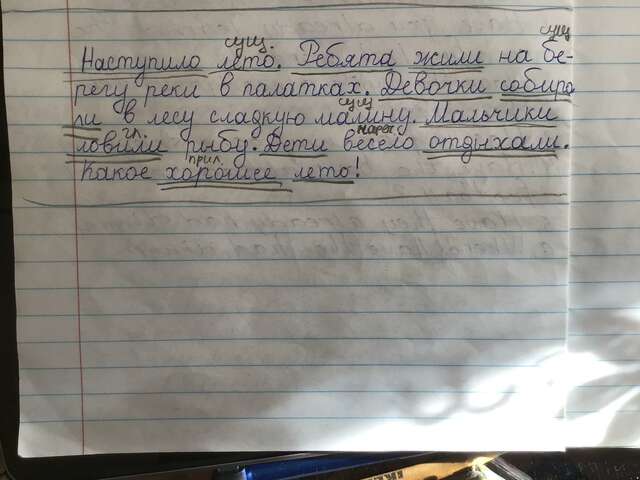 сущ. сущ
Наступило лето. Ребята жили на бе-
регу реки в палатках. Девочки собира
ли в лесу сладкую малину. Мальчики
сущ
ловили рыбу. Дети весело отдыхали.
гл. нареч
Какое хорошее лето!
прил.